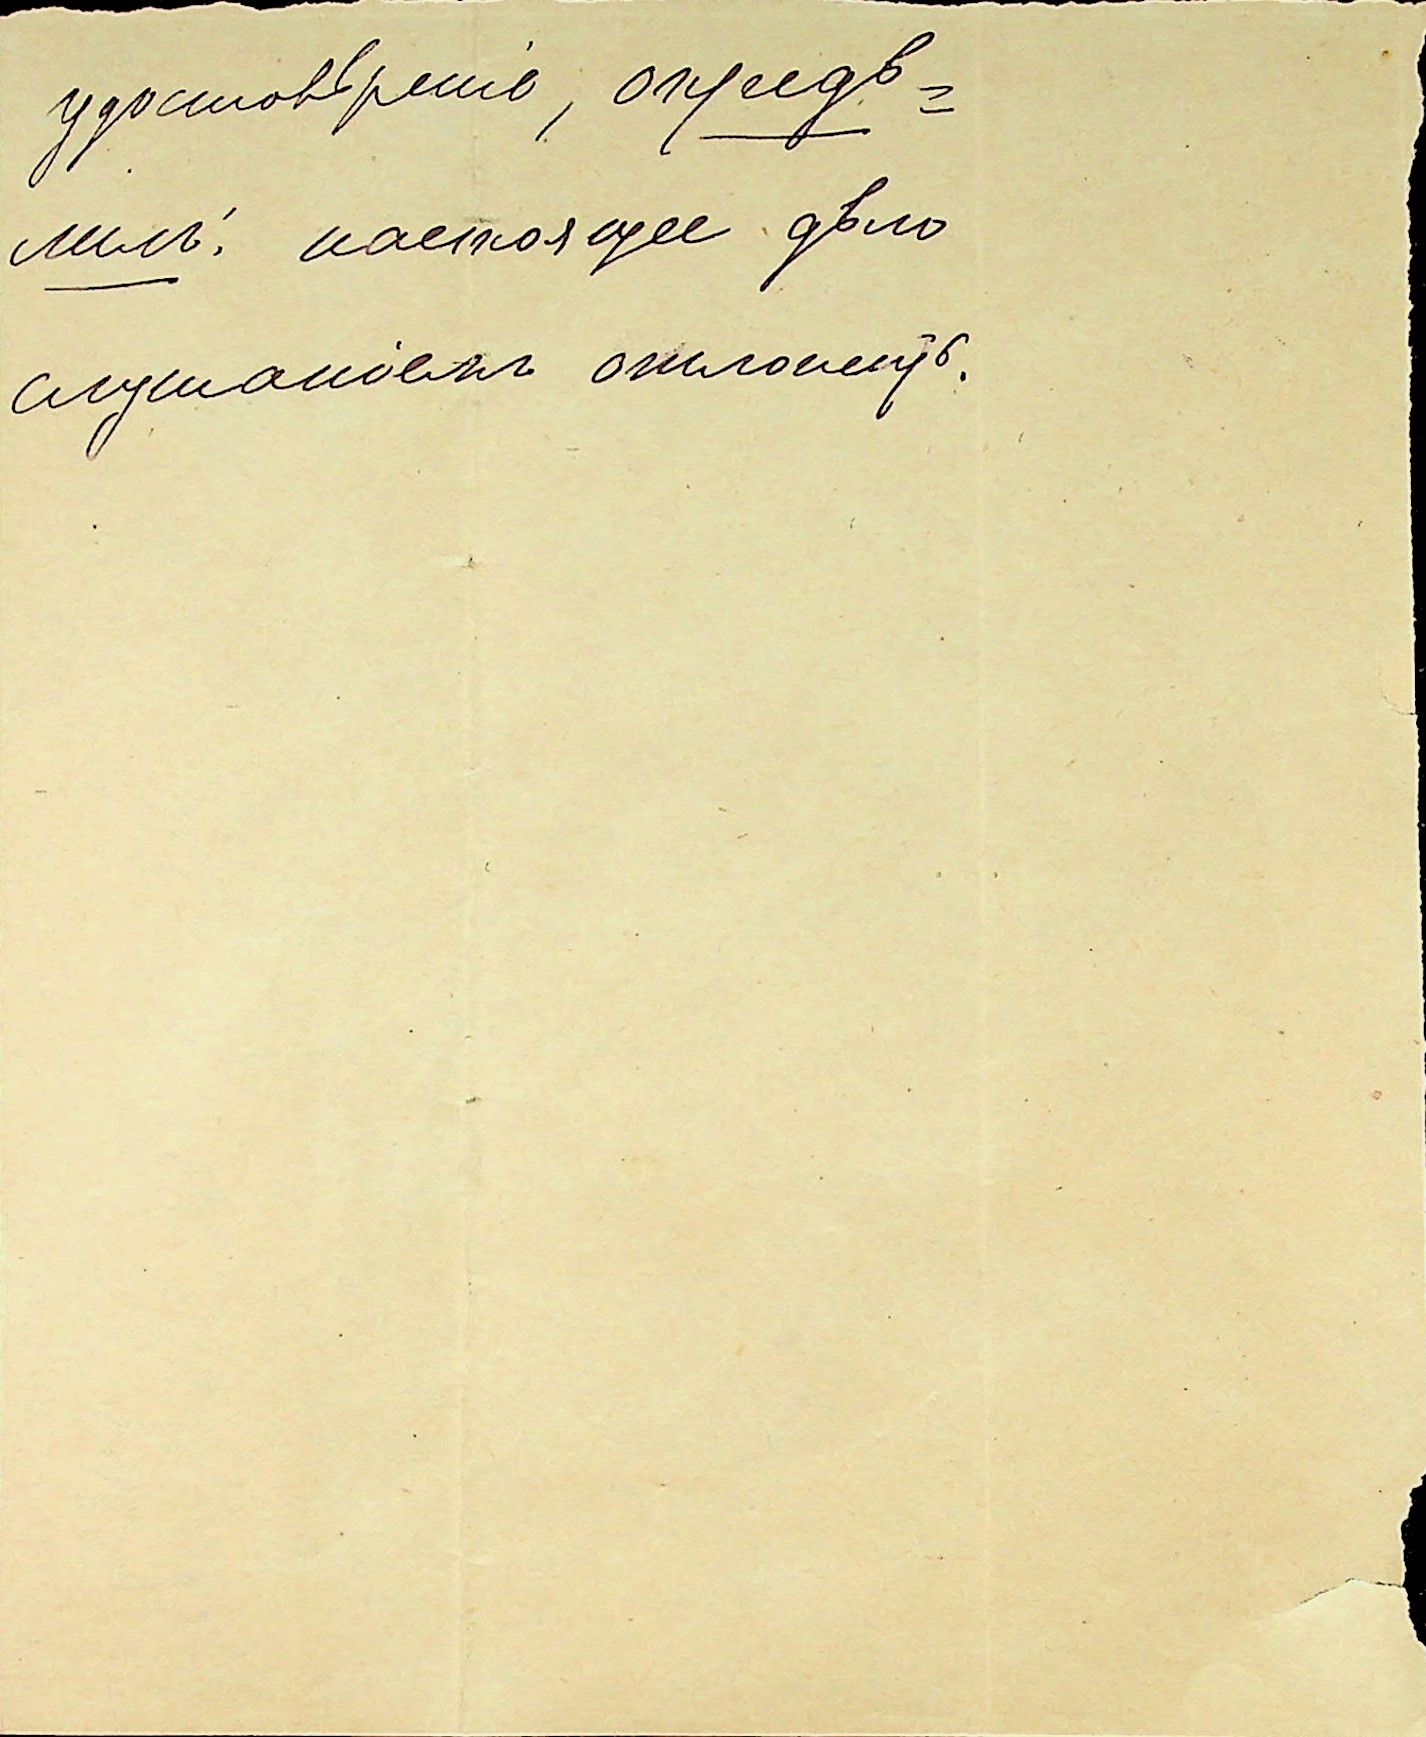 удостовѣренiе, опредѣ=
лилъ: настоящее дѣло
слушанiемъ отложить.